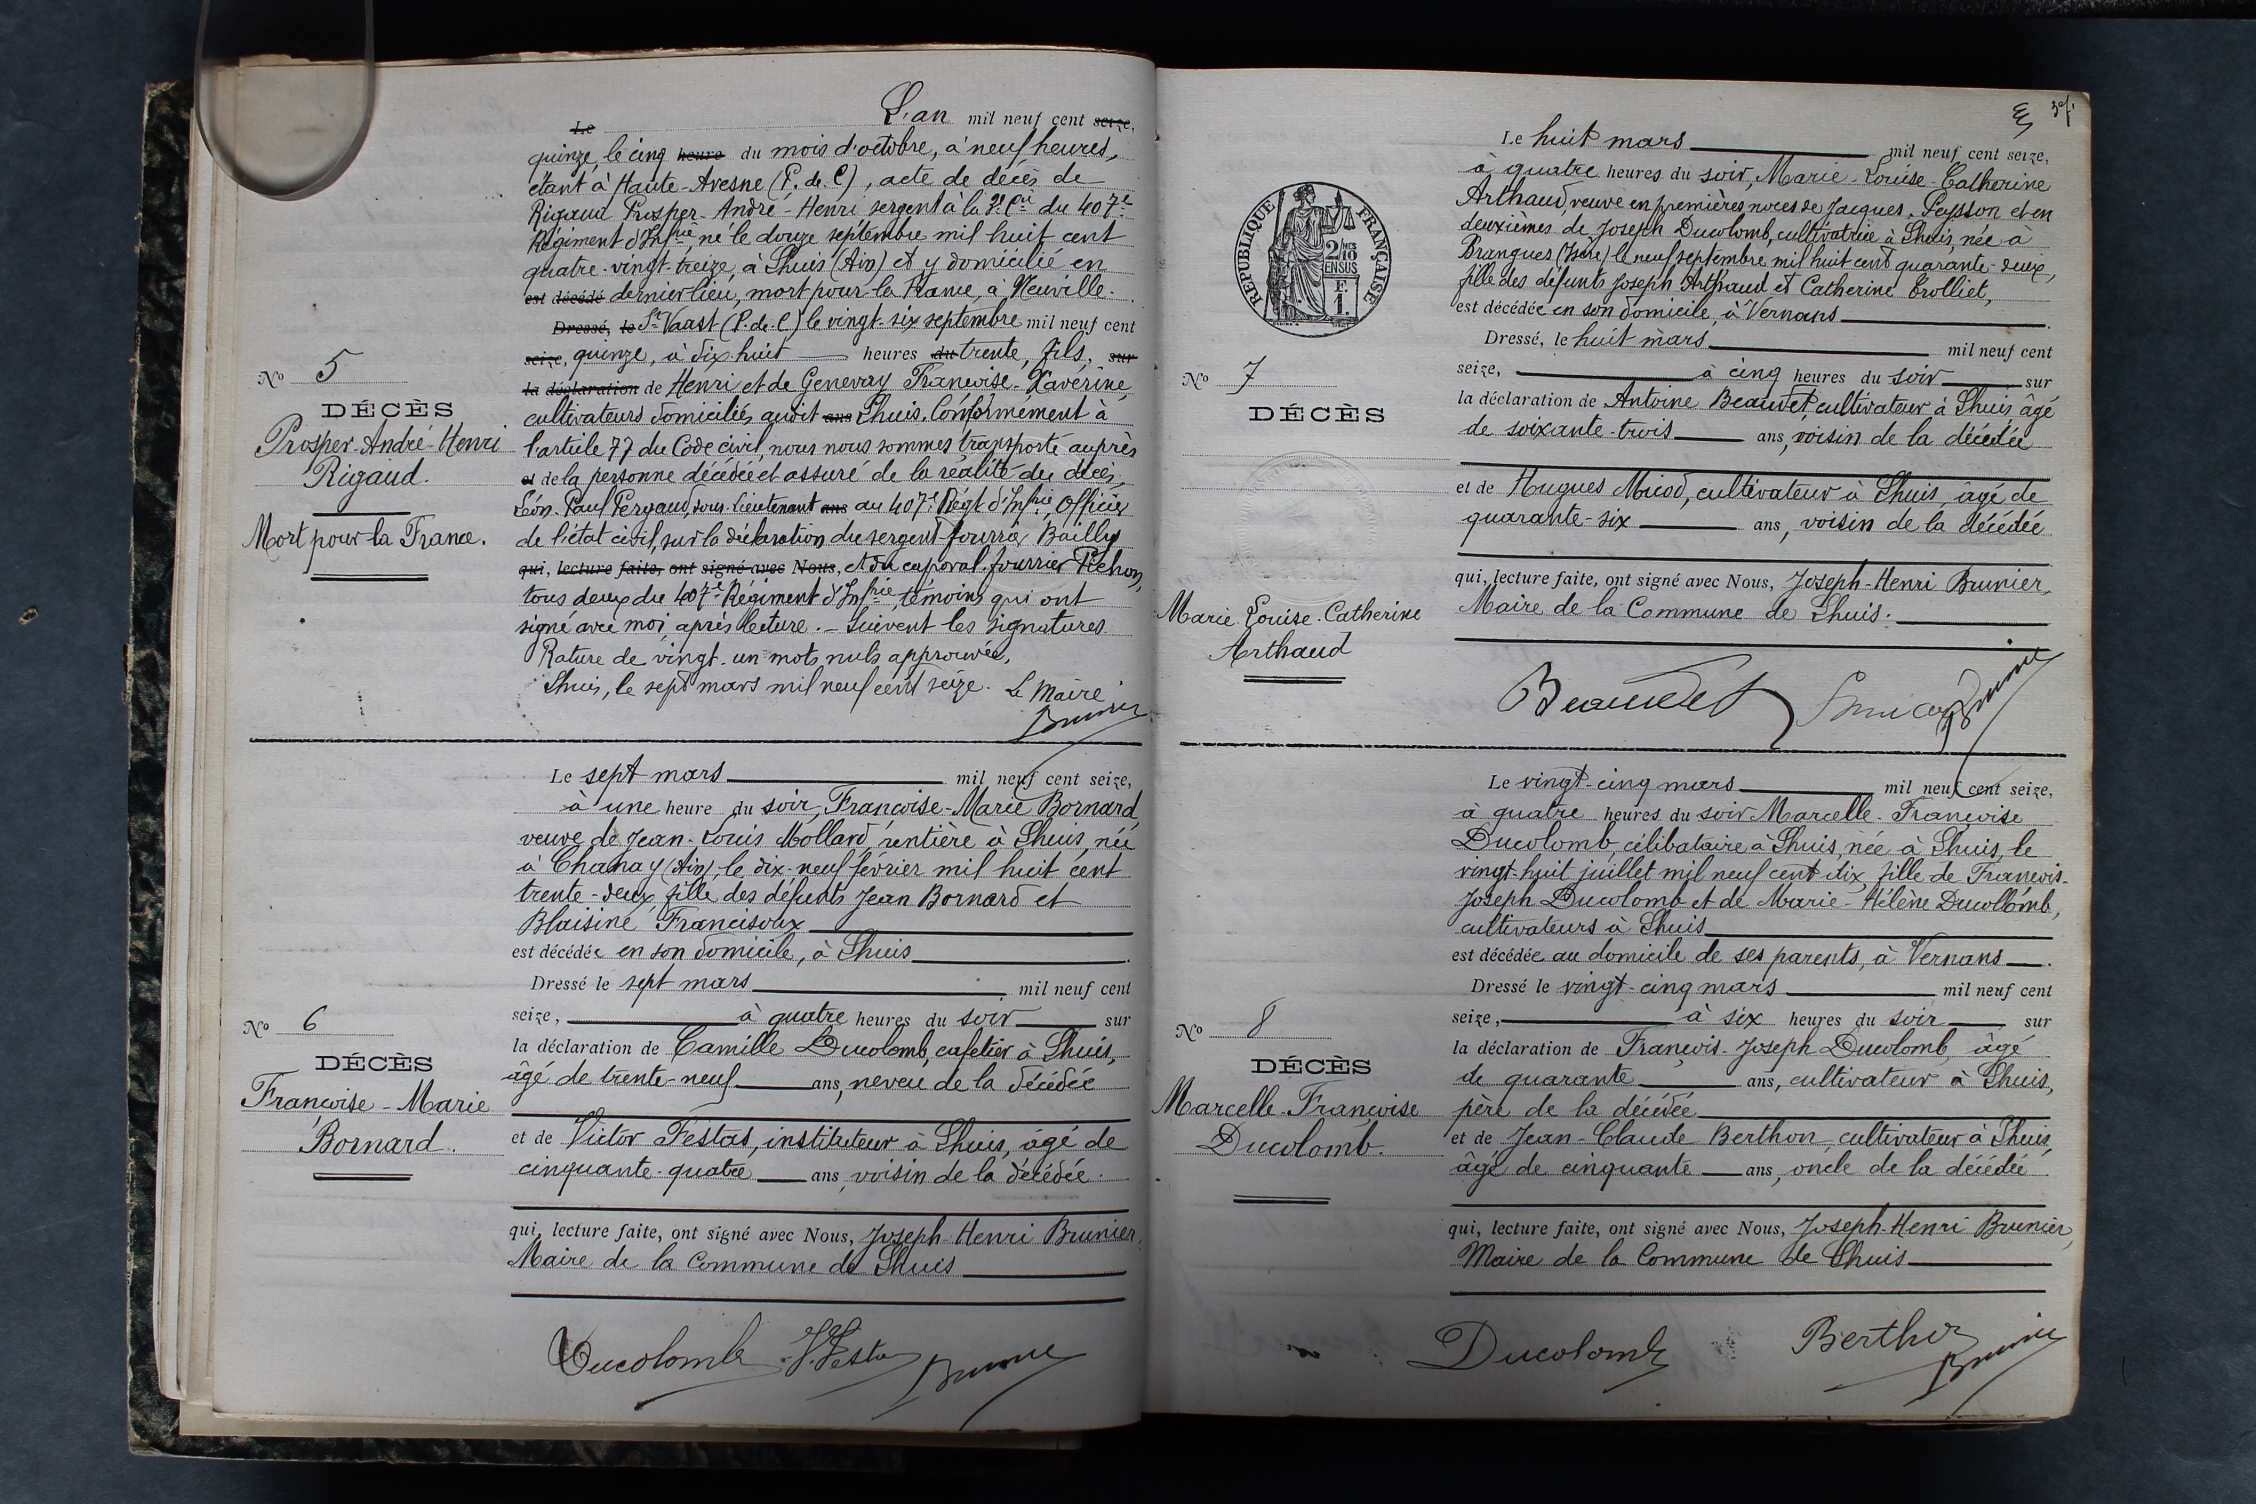 L'an mil neuf cent seize,
Le
quinze, le cinq heure du mois d'octobre, à neuf heures,
étant à Haute-Avesne (P. de. C), acte de décès de
Rigaud Prosper-André-Henri sergent à la 2e Cie du 407e
Régiment d'Infrie, né le douze septembre mil huit cent
quatre-vingt-treize, à Lhuis (Ain) et y domicilié en
est décédé dernier lieu, mort pour la France, à Neuville-
Dressé, le St Vaast (P. de. C) le vingt-six septembre mil neuf cent
seize, quinze, à dix-huit heures du trente, fils, sur
la déclaration de Henri et de Genevay Françoise-Xavérine,
cultivateurs domiciliés audit ans Lhuis. Conformément à
l'article 77 du Code civil, nous nous sommes transporté auprès
et de la personne décédée et assuré de la réalité du décès,
Léon-Paul Pergaud, sous-lieutenant ans au 407e Régt d'Infrie, Officier
de l'état civil, sur la déclaration du sergent-fourrier Bailly
qui, lecture faite, ont signé avec Nous, et du caporal-fourrier Pichon,
tous deux du 407e Régiment d'Infrie, témoins qui ont
signé avec moi, après lecture. – Suivent les signatures
Rature de vingt-un mots nuls approuvée,
Lhuis, le sept mars mil neuf cent seize. Le Maire
Brunier
No 5
DÉCÈS
Prosper-André-Henri
Rigaud.
Mort pour la France.
Le sept mars mil neuf cent seize,
à une heure du soir, Françoise-Marie Bornard,
veuve de Jean-Louis Mollard, rentière à Lhuis, née
à Chanay (Ain), le dix-neuf février mil huit cent
trente-deux, fille des défunts Jean Bornard et
Blaisine Francisoux
est décédée en son domicile, à Lhuis
Dressé le sept mars mil neuf cent
seize, à quatre heures du soir sur
la déclaration de Camille Ducolomb, cafetier à Lhuis,
âgé de trente-neuf ans, neveu de la décédée
et de Victor Festas, instituteur à Lhuis, âgé de
cinquante-quatre ans, voisin de la décédée.
qui, lecture faite, ont signé avec Nous, Joseph-Henri Brunier,
Maire de la Commune de Lhuis
Ducolomb V. Festas Brunier
No 6
DÉCÈS
Françoise-Marie
Bornard.
3e f.
Le huit mars mil neuf cent seize,
à quatre heures du soir, Marie-Louise-Catherine
Arthaud, veuve en premières noces de Jacques Peysson et en
deuxièmes de Joseph Ducolomb, cultivatrice à Lhuis, née à
Brangues (Isère) le neuf septembre mil huit cent quarante-deux,
fille des défunts Joseph Arthaud et Catherine Trolliet,
est décédée en son domicile, à Vernans
Dressé, le huit mars mil neuf cent
seize, à cinq heures du soir sur
la déclaration de Antoine Beauvet, cultivateur à Lhuis, âgé
de soixante-trois ans, voisin de la décédée
et de Hugues Micod, cultivateur à Lhuis, âgé de
quarante-six ans, voisin de la décédée
qui, lecture faite, ont signé avec Nous, Joseph-Henri Brunier,
Maire de la Commune de Lhuis.
Brunier
RÉPUBLIQUE FRANÇAISE
2/10 EN SUS
F.
1.
No 7
DÉCÈS
Marie-Louise-Catherine
Arthaud
Le vingt-cinq mars mil neuf cent seize,
à quatre heures du soir Marcelle-Françoise
Ducolomb, célibataire à Lhuis, née à Lhuis, le
vingt-huit juillet mil neuf cent dix, fille de François-
Joseph Ducolomb et de Marie-Hélène Ducollomb,
cultivateurs à Lhuis
est décédée au domicile de ses parents, à Vernans.
Dressé le vingt-cinq mars mil neuf cent
seize, à six heures du soir sur
la déclaration de François-Joseph Ducolomb, âgé
de quarante ans, cultivateur à Lhuis,
père de la décédée
et de Jean-Claude Berthon, cultivateur à Lhuis,
âgé de cinquante ans, oncle de la décédée.
qui, lecture faite, ont signé avec Nous, Joseph-Henri Brunier,
Maire de la Commune de Lhuis
Ducolomb Berthon Brunier
No 8
DÉCÈS
Marcelle-Françoise
Ducolomb.